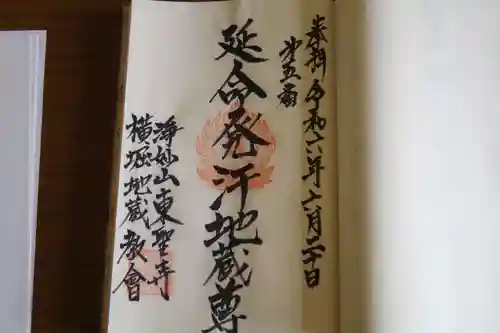 奉拝 令和六年六月二十日
第五番
延命発汗地蔵尊
浄妙山東聖寺
横堀地蔵教會